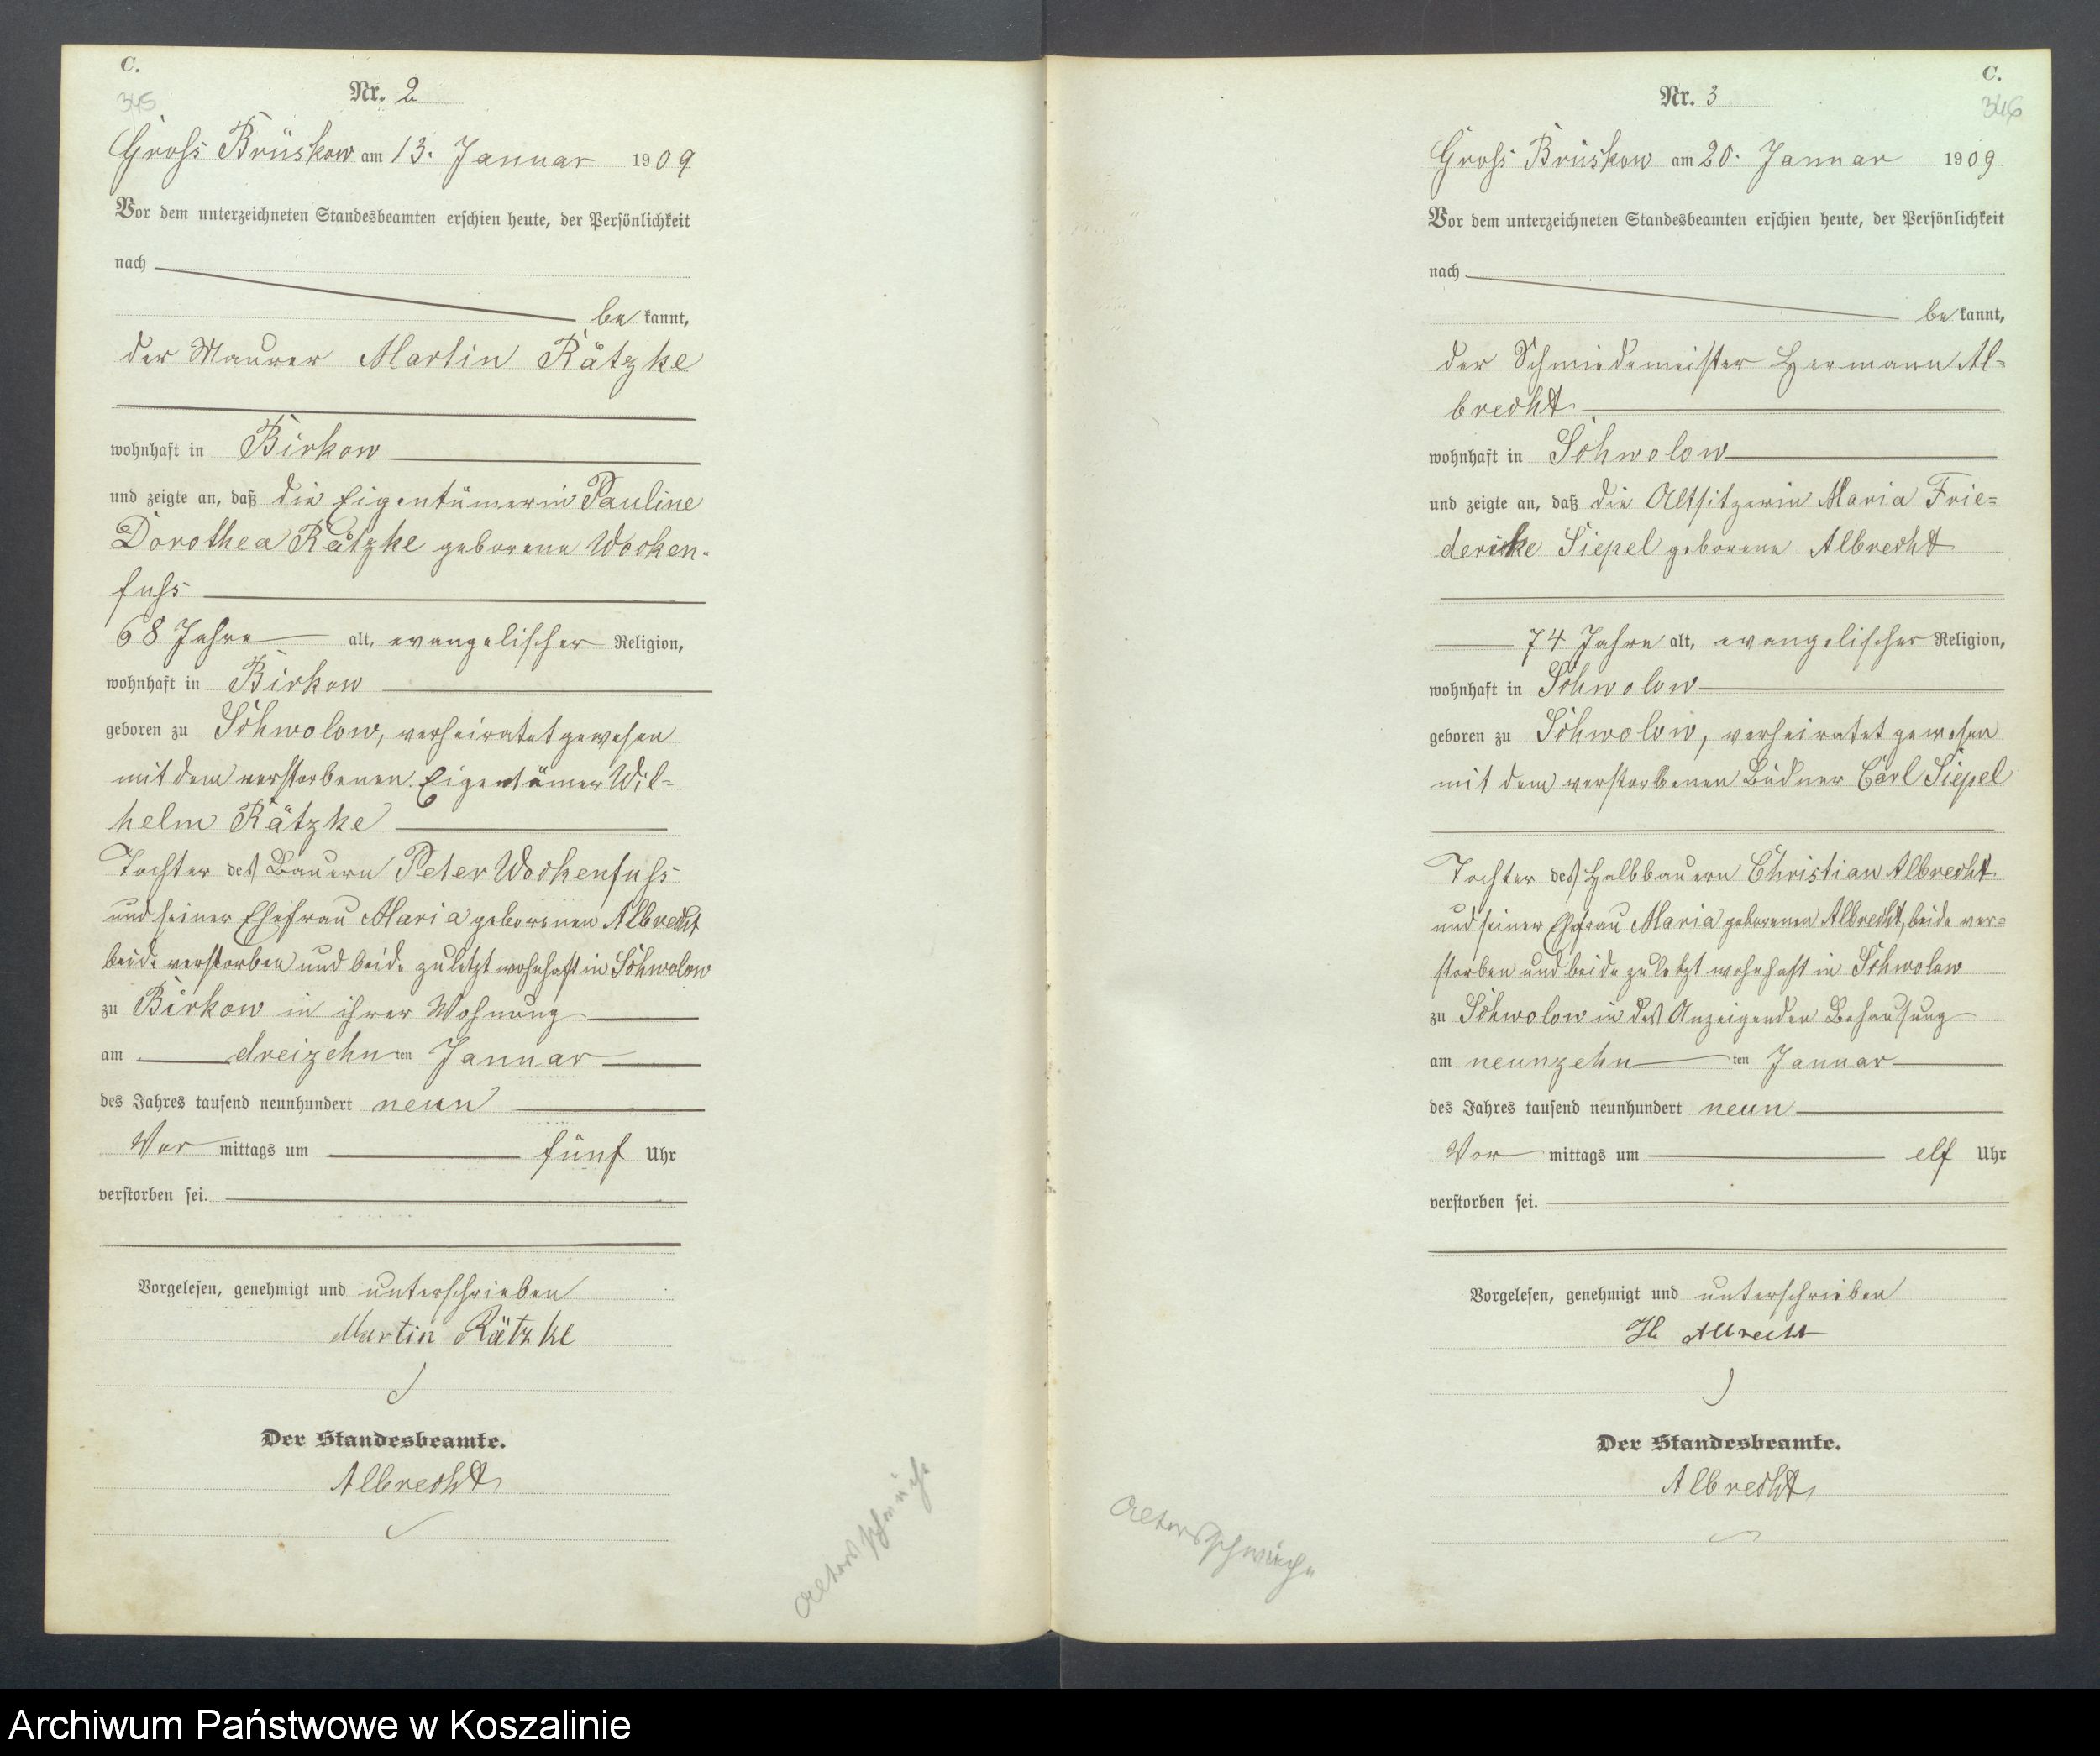 C.
345
Nr. 2
Gross Brüskow am 13. Januar 1909
Vor dem unterzeichneten Standesbeamten erschien heute, der Persönlichkeit
nach
be kannt,
der Maurer Martin Rätzke
wohnhaft in Birkow
und zeigte an, daß die Eigentümerin Pauline
Dorothea Rätzke geborene Wochen-
fuss
68 Jahre alt, evangelischer Religion,
wohnhaft in Birkow
geboren zu Schwolow, verheiratet gewesen
mit dem verstorbenen Eigentümer Wil-
helm Rätzke
Tochter des Bauern Peter Wochenfuss
und seiner Ehefrau Maria geborenen Albrecht
beide verstorben und beide zuletzt wohnhaft in Schwolow
zu Birkow in ihrer Wohnung
am dreizehn ten Januar
des Jahres tausend neunhundert neun
Vor mittags um fünf Uhr
verstorben sei.
Vorgelesen, genehmigt und unterschrieben
Martin Rätzke
Der Standesbeamte.
Albrecht
Altersschwäche
C.
346
Nr. 3
Gross Brüskow am 20. Januar 1909
Vor dem unterzeichneten Standesbeamten erschien heute, der Persönlichkeit
nach
be kannt,
der Schmiedemeister Hermann Al-
brecht
wohnhaft in Schwolow
und zeigte an, daß die Altsitzerin Maria Frie-
dericke Siepel geborene Albrecht
74 Jahre alt, evangelischer Religion,
wohnhaft in Schwolow
geboren zu Schwolow, verheiratet gewesen
mit dem verstorbenen Büdner Carl Siepel
Tochter des Halbbauern Christian Albrecht
und seiner Ehefrau Maria geborenen Albrecht, beide ver-
storben und beide zuletzt wohnhaft in Schwolow
zu Schwolow in des Anzeigenden Behausung
am neunzehn ten Januar
des Jahres tausend neunhundert neun
Vor mittags um elf Uhr
verstorben sei.
Vorgelesen, genehmigt und unterschrieben
H. Albrecht
Der Standesbeamte.
Albrecht
Altersschwäche
Archiwum Państwowe w Koszalinie